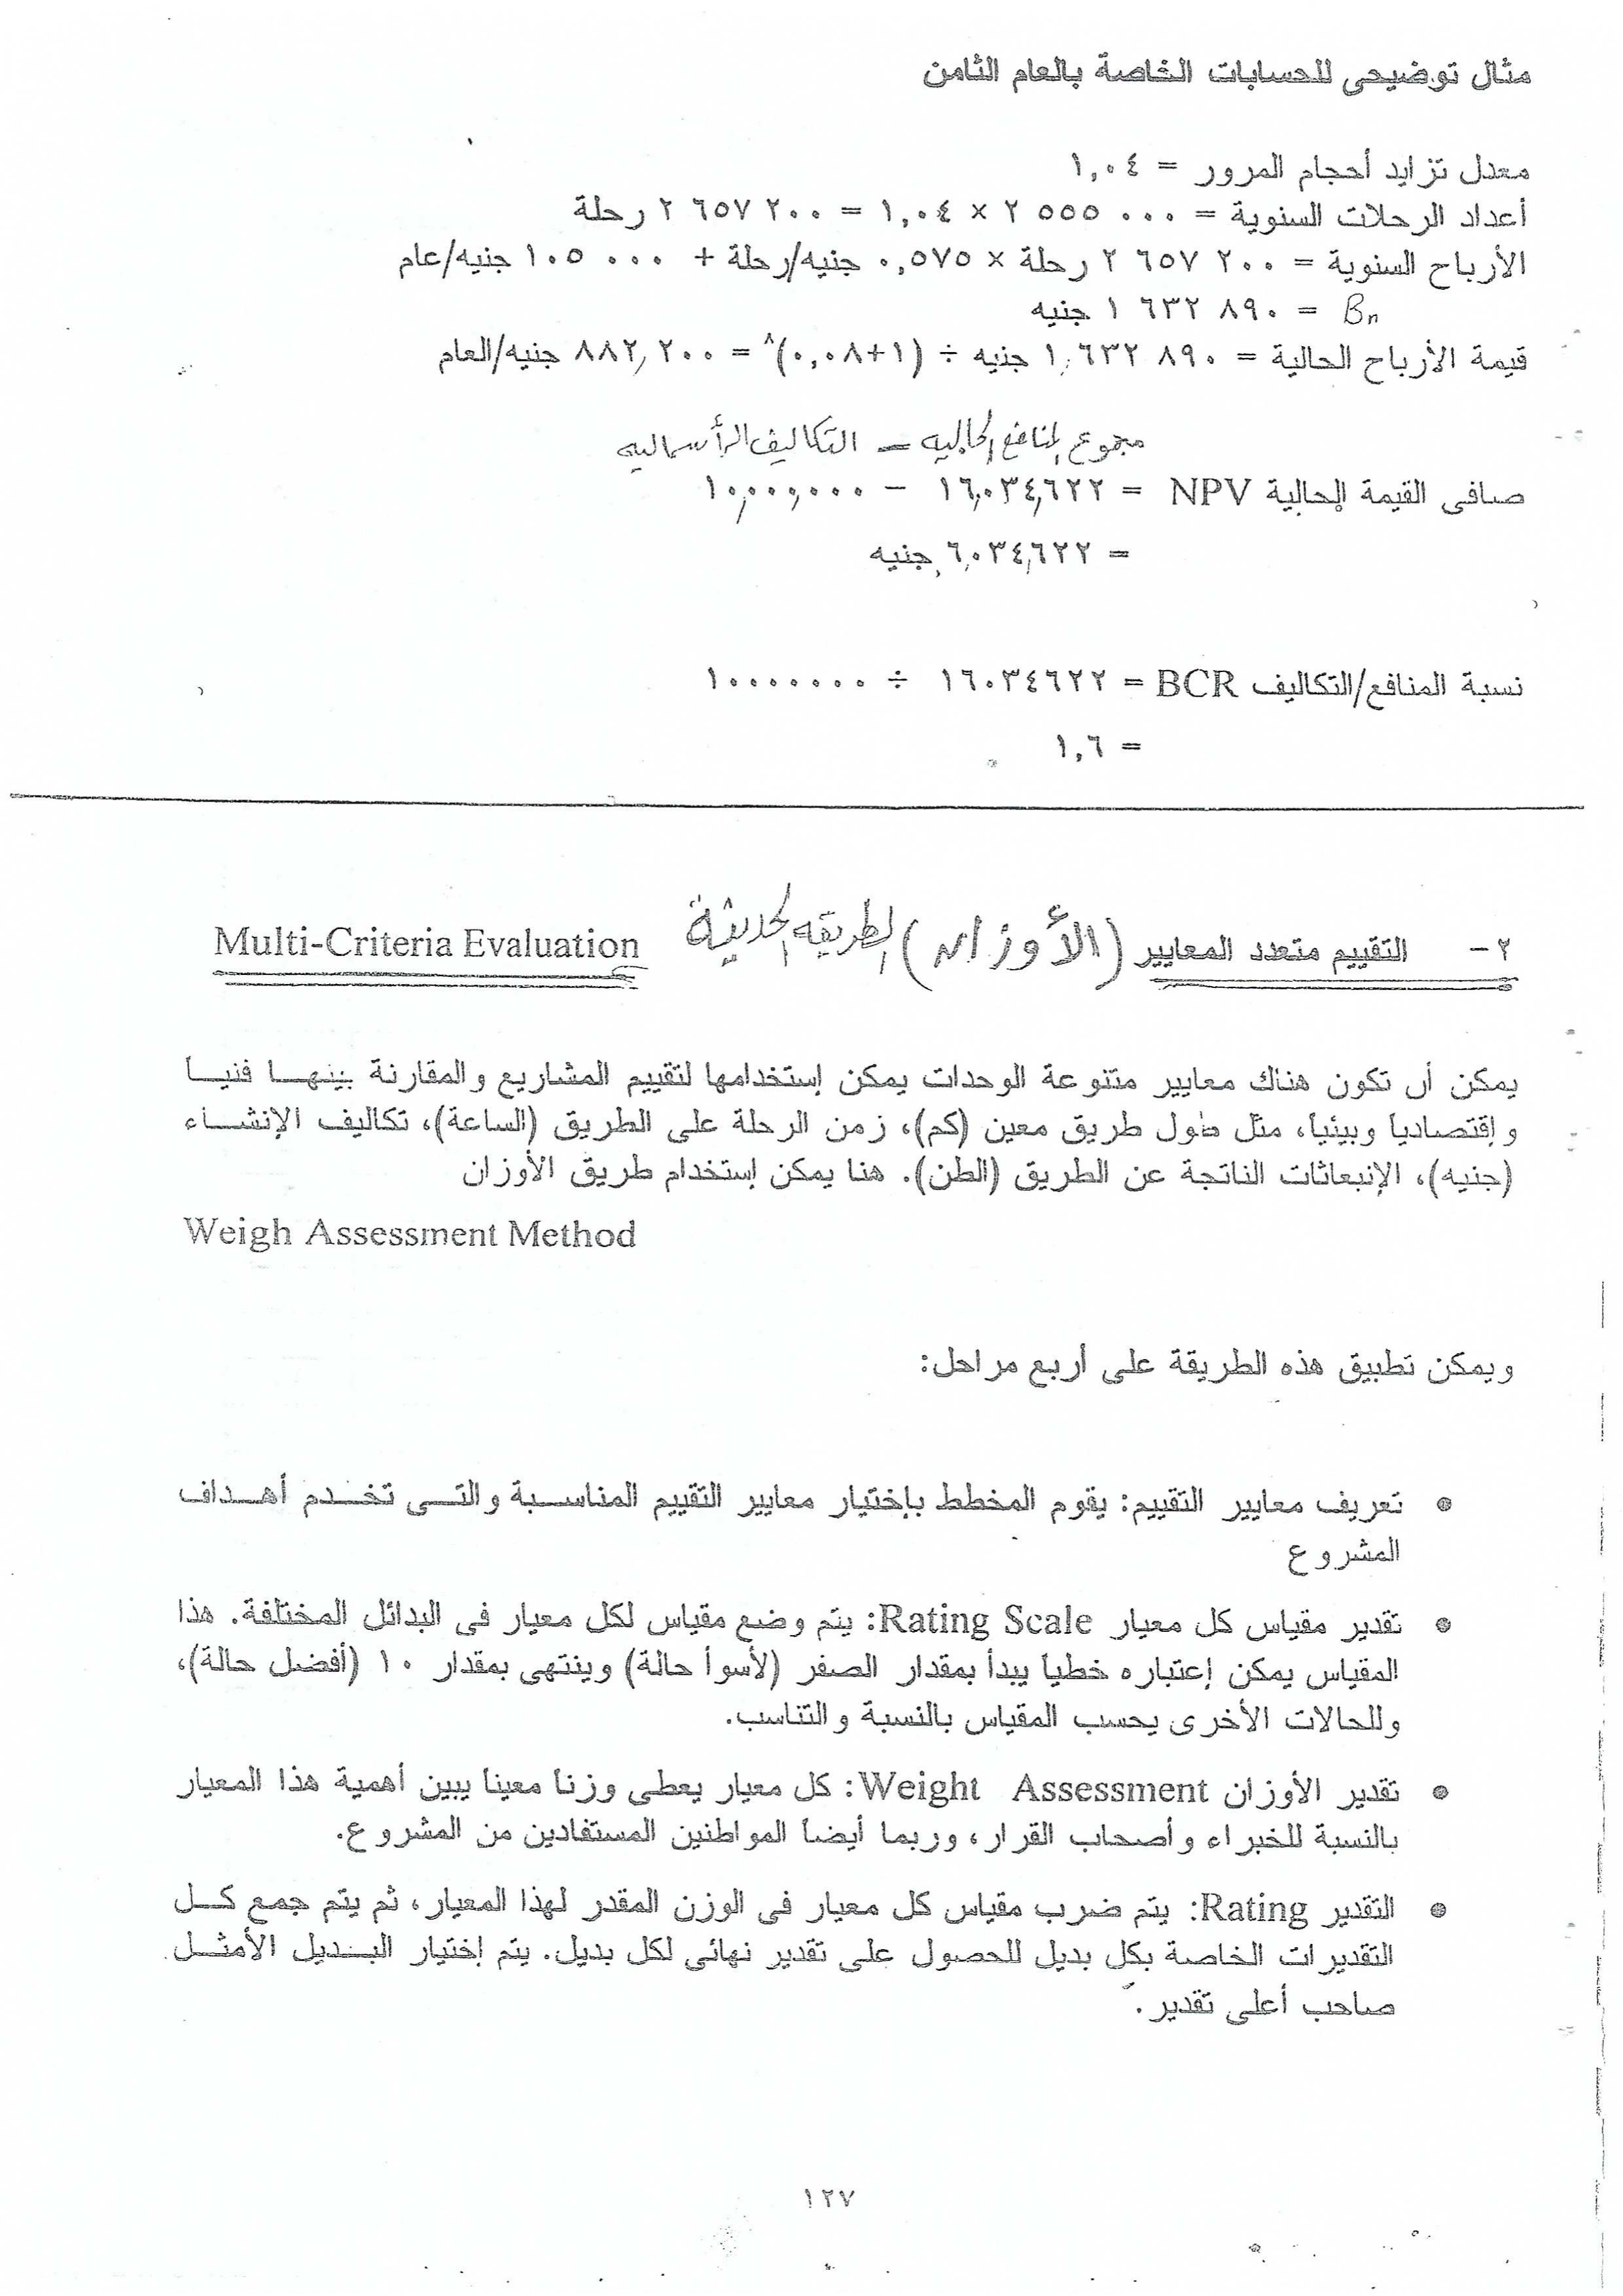 مثال توضيحى للحسابات الخاصة بالعام الثامن
معدل تزايد أحجام المرور = ١,٠٤
أعداد الرحلات السنوية = ٠٠٠ ٥٥٥ ٢ × ١,٠٤ = ٢٠٠ ٦٥٧ ٢ رحلة
الأرباح السنوية = ٢٠٠ ٦٥٧ ٢ رحلة × ٠,٥٧٥ جنيه/رحلة + ٠٠٠ ١٠٥ جنيه/عام
Bn = ٨٩٠ ٦٣٢ ١ جنيه
قيمة الأرباح الحالية = ٨٩٠ ١,٦٣٢ جنيه ÷ (١+٠,٠٨)^٨ = ٨٨٢,٢٠٠ جنيه/العام
مجموع المنافع الحاليه – التكاليف الرأسماليه
صافى القيمة الحالية NPV = ١٦,٠٣٤,٦٢٢ – ١٠,٠٠٠,٠٠٠
= ٦,٠٣٤,٦٢٢ جنيه
نسبة المنافع/التكاليف BCR = ١٦٠٣٤٦٢٢ ÷ ١٠٠٠٠٠٠٠
= ١,٦
٢- التقييم متعدد المعايير (الأوزان) الطريقه الحديثة Multi-Criteria Evaluation
يمكن أن تكون هناك معايير متنوعة الوحدات يمكن إستخدامها لتقييم المشاريع والمقارنة بينها فنيا
وإقتصاديا وبيئيا، مثل طول طريق معين (كم)، زمن الرحلة على الطريق (الساعة)، تكاليف الإنشاء
(جنيه)، الإنبعاثات الناتجة عن الطريق (الطن). هنا يمكن إستخدام طريق الأوزان
Weigh Assessment Method
ويمكن تطبيق هذه الطريقة على أربع مراحل:
• تعريف معايير التقييم: يقوم المخطط بإختيار معايير التقييم المناسبة والتى تخدم أهداف
المشروع
• تقدير مقياس كل معيار Rating Scale: يتم وضع مقياس لكل معيار فى البدائل المختلفة. هذا
المقياس يمكن إعتباره خطيا يبدأ بمقدار الصفر (لأسوأ حالة) وينتهى بمقدار ١٠ (أفضل حالة)،
وللحالات الأخرى يحسب المقياس بالنسبة والتناسب.
• تقدير الأوزان Weight Assessment: كل معيار يعطى وزنا معينا يبين أهمية هذا المعيار
بالنسبة للخبراء وأصحاب القرار، وربما أيضا المواطنين المستفادين من المشروع.
• التقدير Rating: يتم ضرب مقياس كل معيار فى الوزن المقدر لهذا المعيار، ثم يتم جمع كل
التقديرات الخاصة بكل بديل للحصول على تقدير نهائى لكل بديل. يتم إختيار البديل الأمثل
صاحب أعلى تقدير.
١٢٧